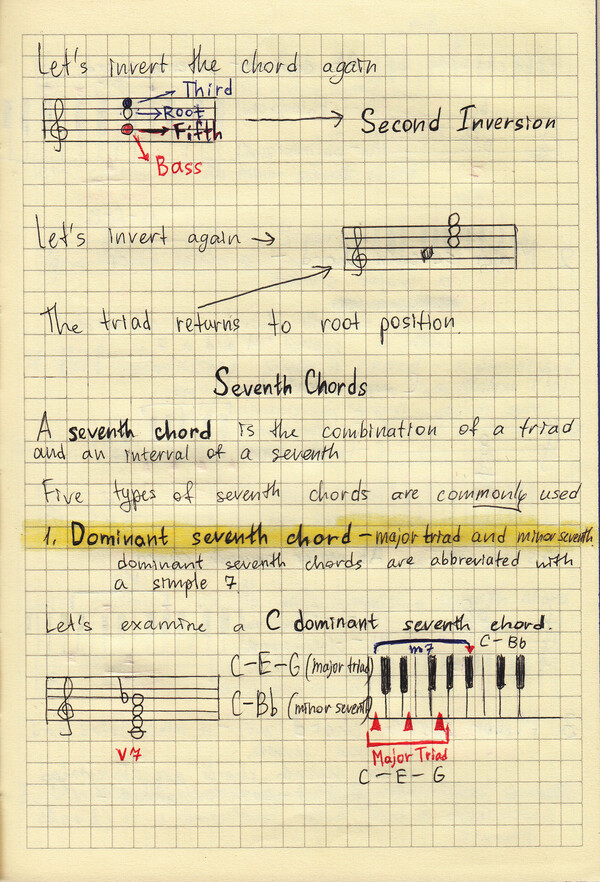 Let's invert the chord again
Third
Root
Fifth
Bass
Second Inversion
Let's invert again
The triad returns to root position.
Seventh Chords
A seventh chord is the combination of a triad
and an interval of a seventh
Five types of seventh chords are commonly used
1. Dominant seventh chord – major triad and minor seventh.
dominant seventh chords are abbreviated with
a simple 7
Let's examine a C dominant seventh chord.
m7
C – Bb
C–E–G (major triad)
C–Bb (minor seventh)
V7
Major Triad
C – E – G